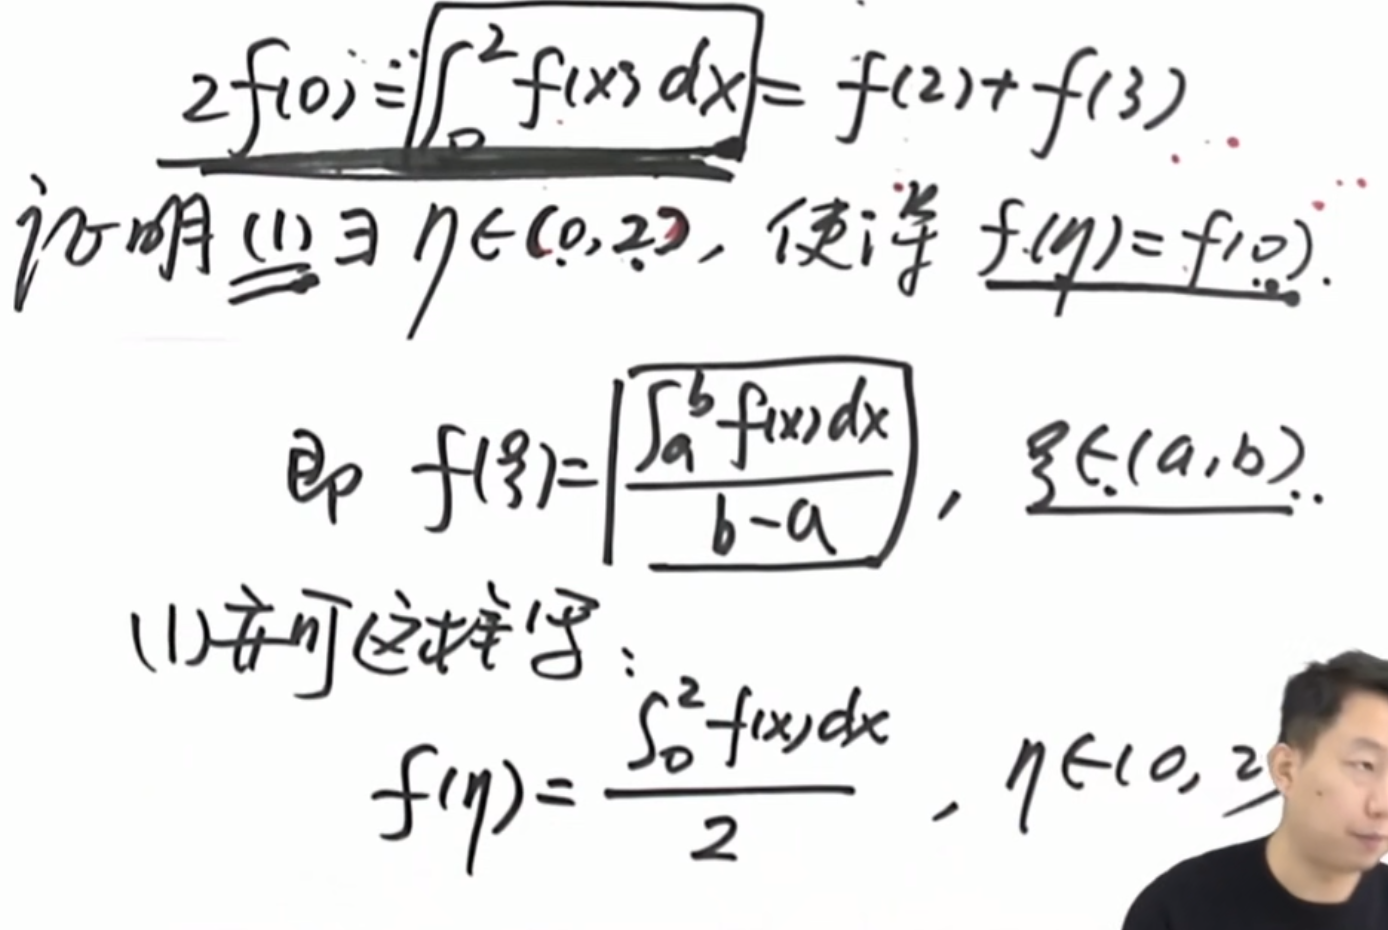 2f(0) = ∫₀² f(x) dx = f(2) + f(3)
证明 (1) ∃ η∈(0,2), 使得 f(η) = f(0).
即 f(ξ) = ∫ₐᵇ f(x)dx / b-a , ξ∈(a,b).
(1)亦可这样写:
f(η) = ∫₀² f(x)dx / 2 , η∈(0, 2